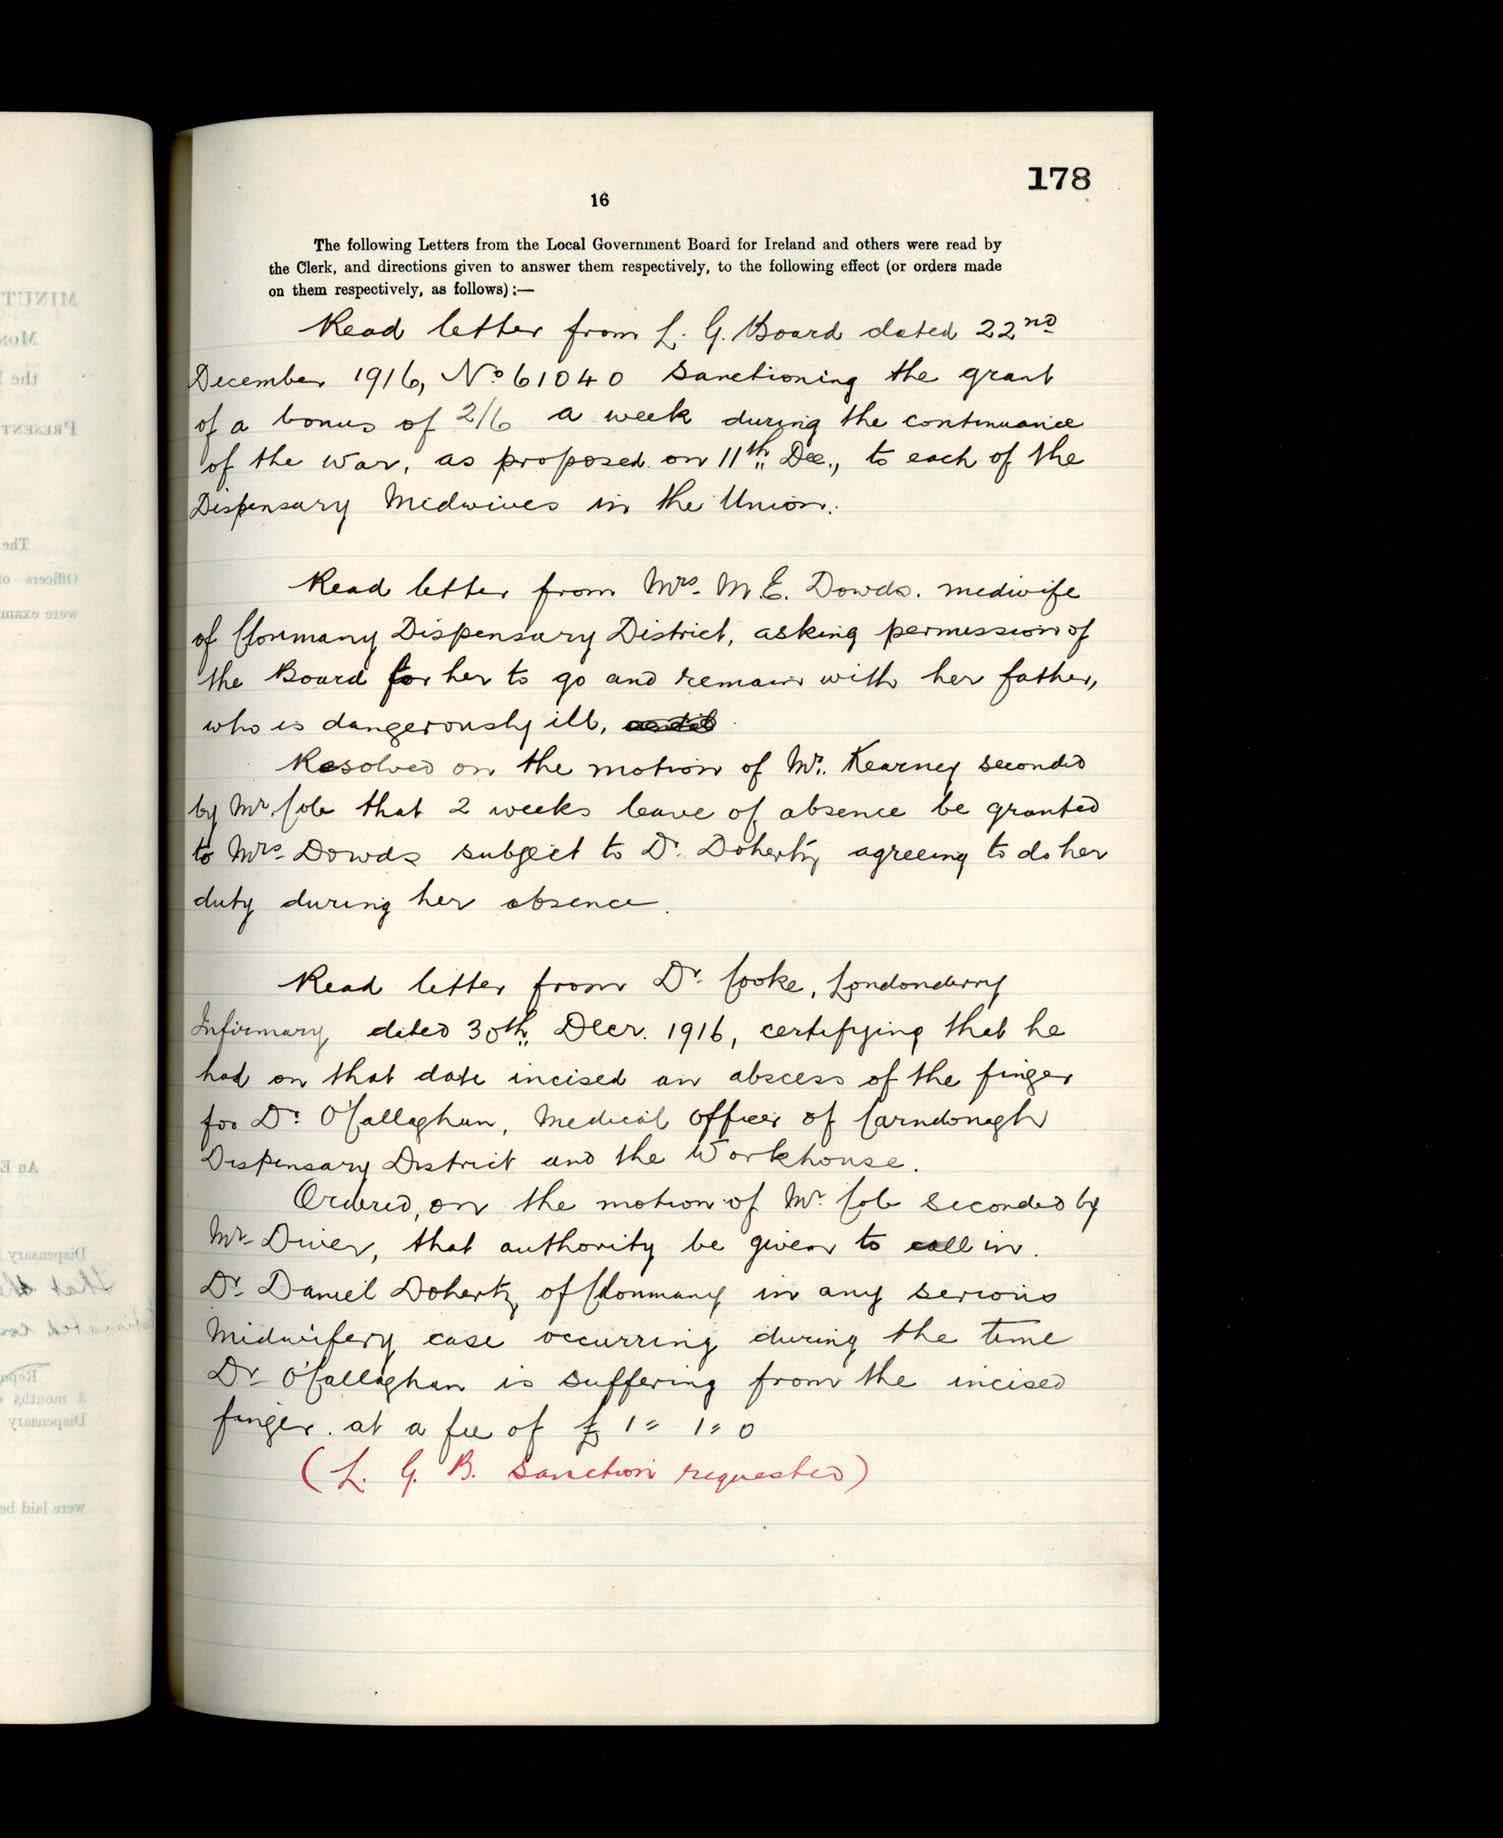 178
16
The following Letters from the Local Government Board for Ireland and others were read by
the Clerk, and directions given to answer them respectively, to the following effect (or orders made
on them respectively, as follows) :—
Read letter from L. G. Board dated 22nd
December 1916, No 61040 sanctioning the grant
of a bonus of 2/6 a week during the continuance
of the war, as proposed on 11th Dec., to each of the
Dispensary Midwives in the Union.
Read letter from Mrs. M. E. Dowds. midwife
of Clonmany Dispensary District, asking permission of
the Board for her to go and remain with her father,
who is dangerously ill,
Resolved on the motion of Mr. Kearney seconded
by Mr. Cole that 2 weeks leave of absence be granted
to Mrs Dowds subject to Dr. Doherty agreeing to do her
duty during her absence.
Read letter from Dr. Cooke, Londonderry
Infirmary dated 30th Decr. 1916, certifying that he
had on that date incised an abscess of the finger
for Dr. O'Callaghan, Medical Officer of Carndonagh
Dispensary District and the Workhouse.
Ordered, on the motion of Mr Cole seconded by
Mr Diver, that authority be given to call in.
Dr. Daniel Doherty of Clonmany in any serious
Midwifery case occurring during the time
Dr. O'Callaghan is suffering from the incised
finger. at a fee of £1=1=0
(L. G. B. Sanction requested)
MINUT
the
PRESENT
The
Officers o
were exam
An E
Dispensary
that the
Repo
3 months
Dispensary
were laid be